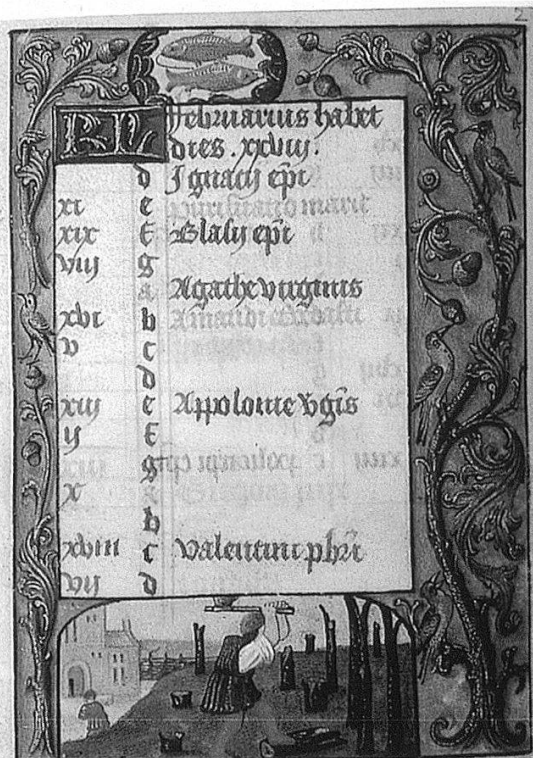 2
KL Februarius habet
dies . xxviij .
d Ignacij epi
xi e purificatio marie
xix f Blasij epi
viij g
a Agathe virginis
xvi b Amandi
v c
d
xiij e Appolonie vgis
ij f
g
x a
b
xviii c Valentini pbri
vij d